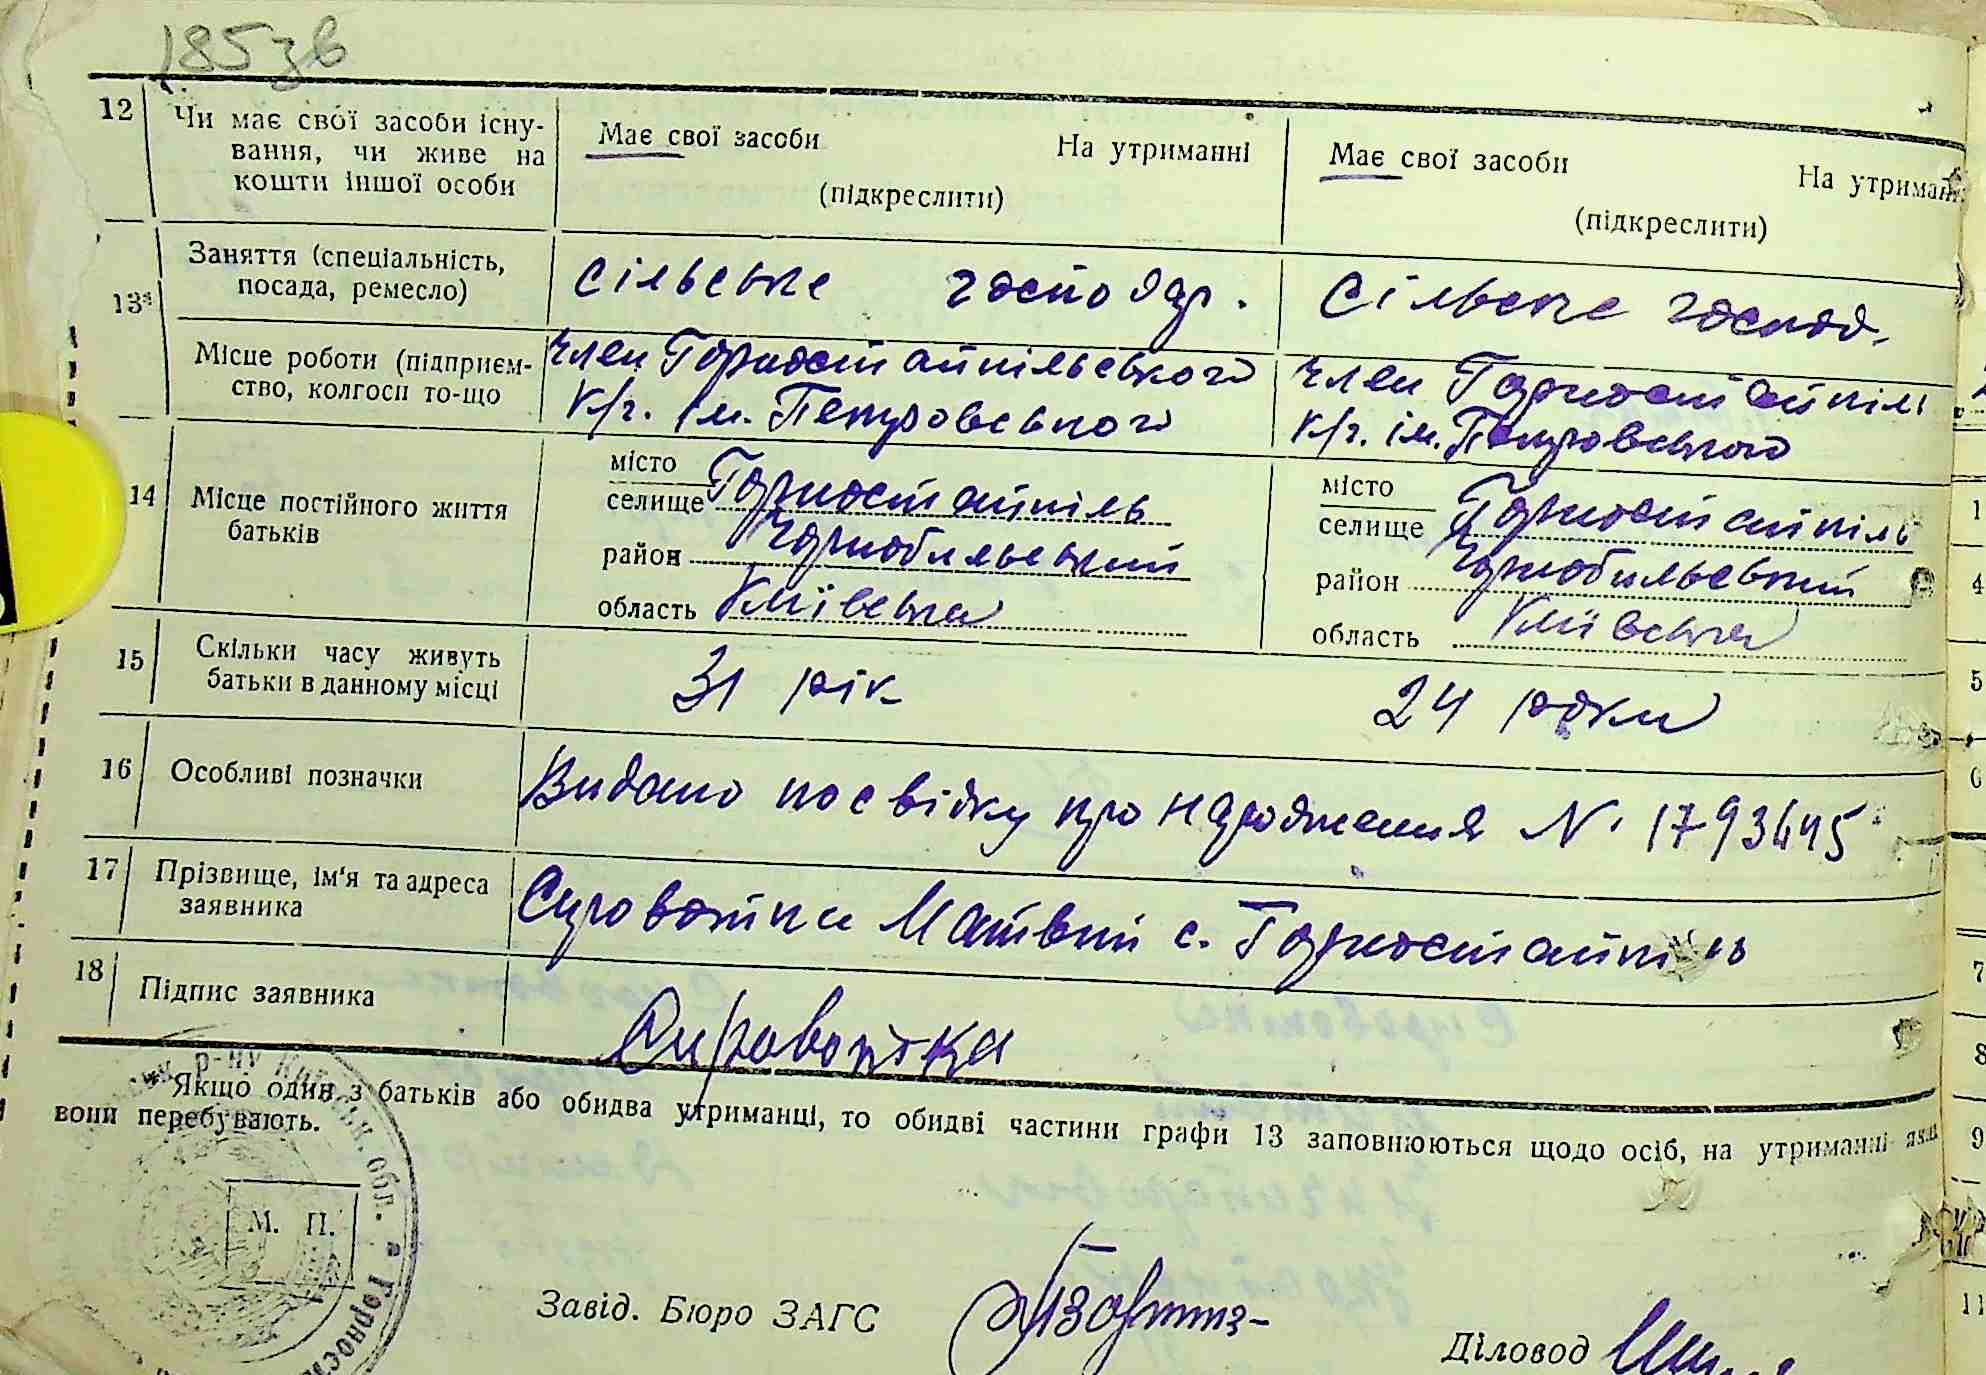 185 зв
12 Чи має свої засоби існу-
вання, чи живе на
кошти іншої особи
Має свої засоби На утриманні
(підкреслити)
Має свої засоби На утриман
(підкреслити)
13* Заняття (спеціальність,
посада, ремесло)
Сільське господар.
Сільське господ.
Місце роботи (підприєм-
ство, колгосп то-що
Член Горностайпільського
К/г. ім. Петровського
Член Горностайпіль
К/г. ім. Петровського
14 Місце постійного життя
батьків
місто
селище Горностайпіль
район Чорнобильський
область Київська
місто
селище Горностайпіль
район Чорнобильський
область Київська
15 Скільки часу живуть
батьки в данному місці
31 рік
24 роки
16 Особливі позначки
Видано посвідку про народження N. 1793445
17 Прізвище, ім'я та адреса
заявника
Сировотка Матвій с. Горностайпіль
18 Підпис заявника
Сировотка
* Якщо один з батьків або обидва утриманці, то обидві частини графи 13 заповнюються щодо осіб, на утриманні яких
вони перебувають.
р-ну Київськ. обл. Горност
М. П.
Завід. Бюро ЗАГС
Діловод